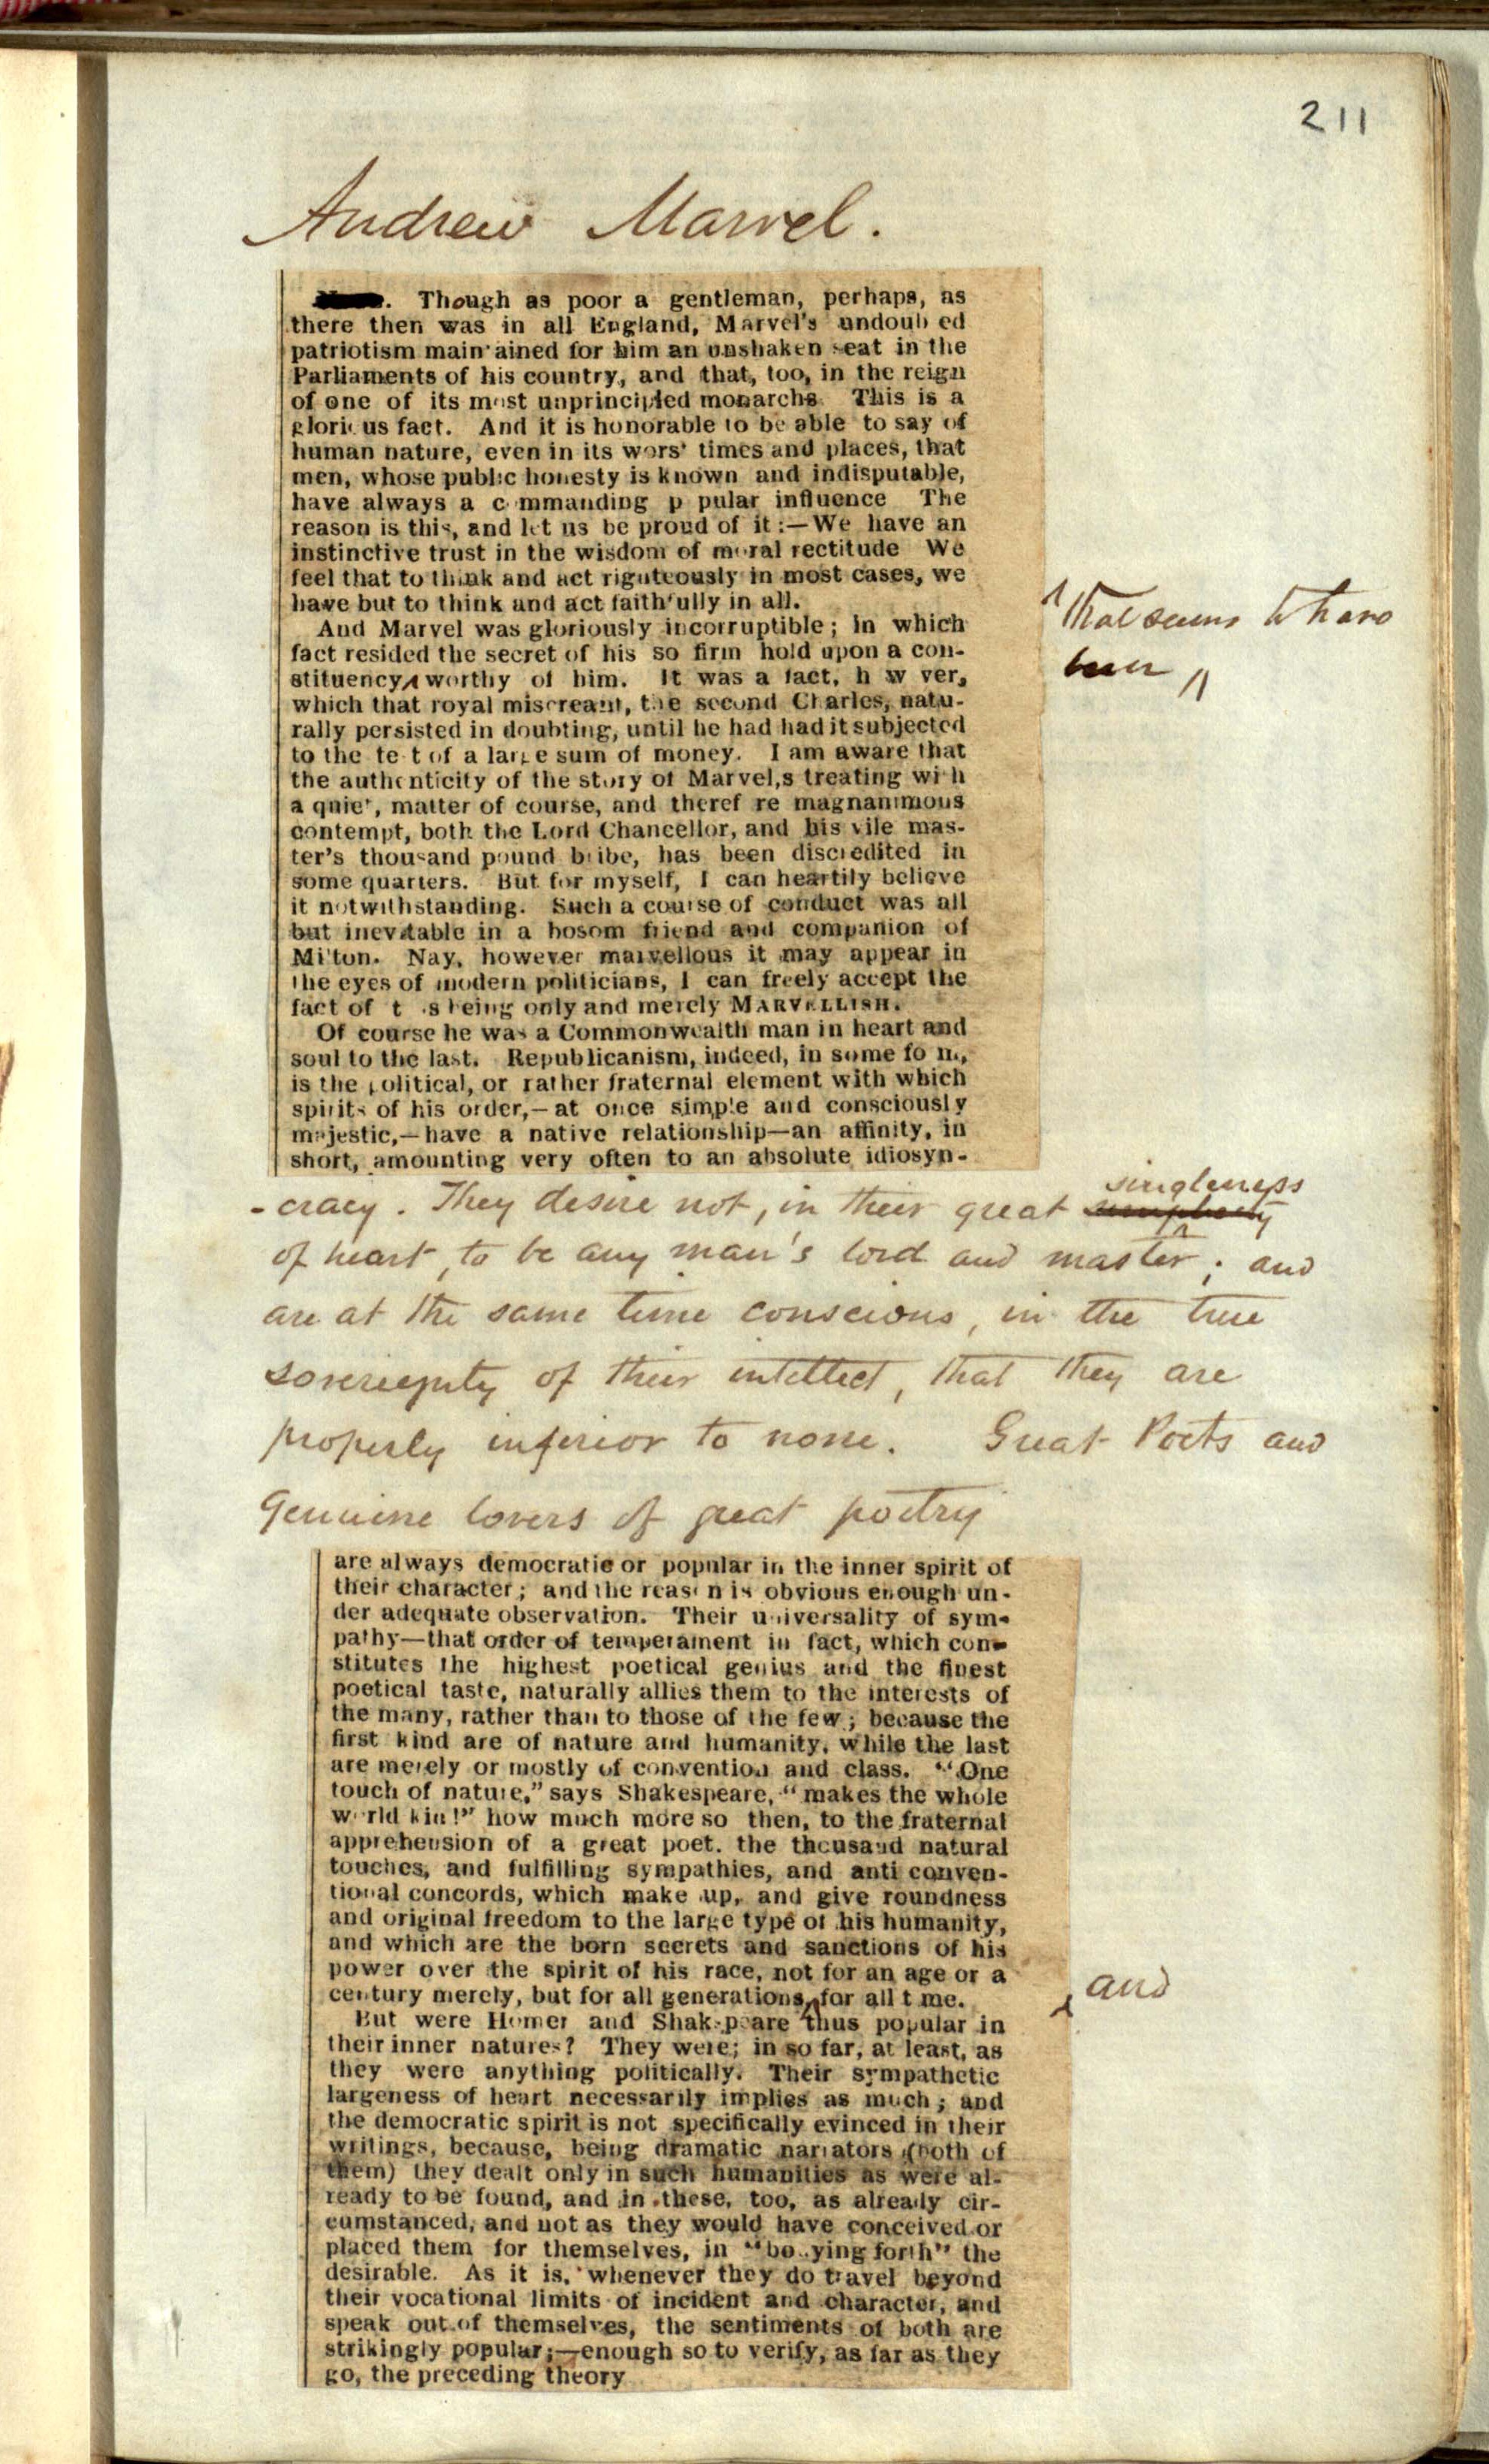 211
Andrew Marvel.
. Though as poor a gentleman, perhaps, as
there then was in all England, Marvel's undoub ed
patriotism main'ained for him an unshaken seat in the
Parliaments of his country, and that, too, in the reign
of one of its most unprincipled monarchs. This is a
glorious fact. And it is honorable to be able to say of
human nature, even in its wors' times and places, that
men, whose public honesty is known and indisputable,
have always a c mmanding p pular influence The
reason is this, and let us be proud of it :—We have an
instinctive trust in the wisdom of moral rectitude We
feel that to think and act righteously in most cases, we
have but to think and act faithfully in all.
And Marvel was gloriously incorruptible; in which
fact resided the secret of his so firm hold upon a con-
stituency ʌ worthy of him. It was a fact, h w ver,
ʌ that seems to have
been //
which that royal miscreant, the second Charles, natu-
rally persisted in doubting, until he had had it subjected
to the te t of a large sum of money. I am aware that
the authenticity of the story of Marvel,s treating wi h
a quie', matter of course, and theref re magnanimous
contempt, both the Lord Chancellor, and his vile mas-
ter's thousand pound bribe, has been discredited in
some quarters. But for myself, I can heartily believe
it notwithstanding. Such a course of conduct was all
but inevitable in a bosom friend and companion of
Milton. Nay, however marvellous it may appear in
the eyes of modern politicians, I can freely accept the
fact of t s being only and merely MARVELLISH.
Of course he was a Commonwealth man in heart and
soul to the last. Republicanism, indeed, in some fo m,
is the political, or rather fraternal element with which
spirits of his order,—at once simple and consciously
majestic,—have a native relationship—an affinity, in
short, amounting very often to an absolute idiosyn-
-cracy. They desire not, in their great singleness
of heart, to be any man's lord and master; and
are at the same time conscious, in the true
sovereignty of their intellect, that they are
properly inferior to none. Great Poets and
Genuine lovers of great poetry
are always democratic or popular in the inner spirit of
their character; and the reas n is obvious enough un-
der adequate observation. Their universality of sym-
pathy—that order of temperament in fact, which con-
stitutes the highest poetical genius and the finest
poetical taste, naturally allies them to the interests of
the many, rather than to those of the few; because the
first kind are of nature and humanity, while the last
are merely or mostly of convention and class. "One
touch of nature," says Shakespeare, "makes the whole
w rld kin!" how much more so then, to the fraternal
apprehension of a great poet. the thousand natural
touches, and fulfilling sympathies, and anti conven-
tional concords, which make up, and give roundness
and original freedom to the large type of his humanity,
and which are the born secrets and sanctions of his
power over the spirit of his race, not for an age or a
century merely, but for all generations, ʌ for all t me.
ʌ and
But were Homer and Shakspeare thus popular in
their inner natures? They were; in so far, at least, as
they were anything politically. Their sympathetic
largeness of heart necessarily implies as much; and
the democratic spirit is not specifically evinced in their
writings, because, being dramatic narrators (both of
them) they dealt only in such humanities as were al-
ready to be found, and in these, too, as already cir-
cumstanced, and not as they would have conceived or
placed them for themselves, in "bo ying forth" the
desirable. As it is, whenever they do travel beyond
their vocational limits of incident and character, and
speak out of themselves, the sentiments of both are
strikingly popular;—enough so to verify, as far as they
go, the preceding theory